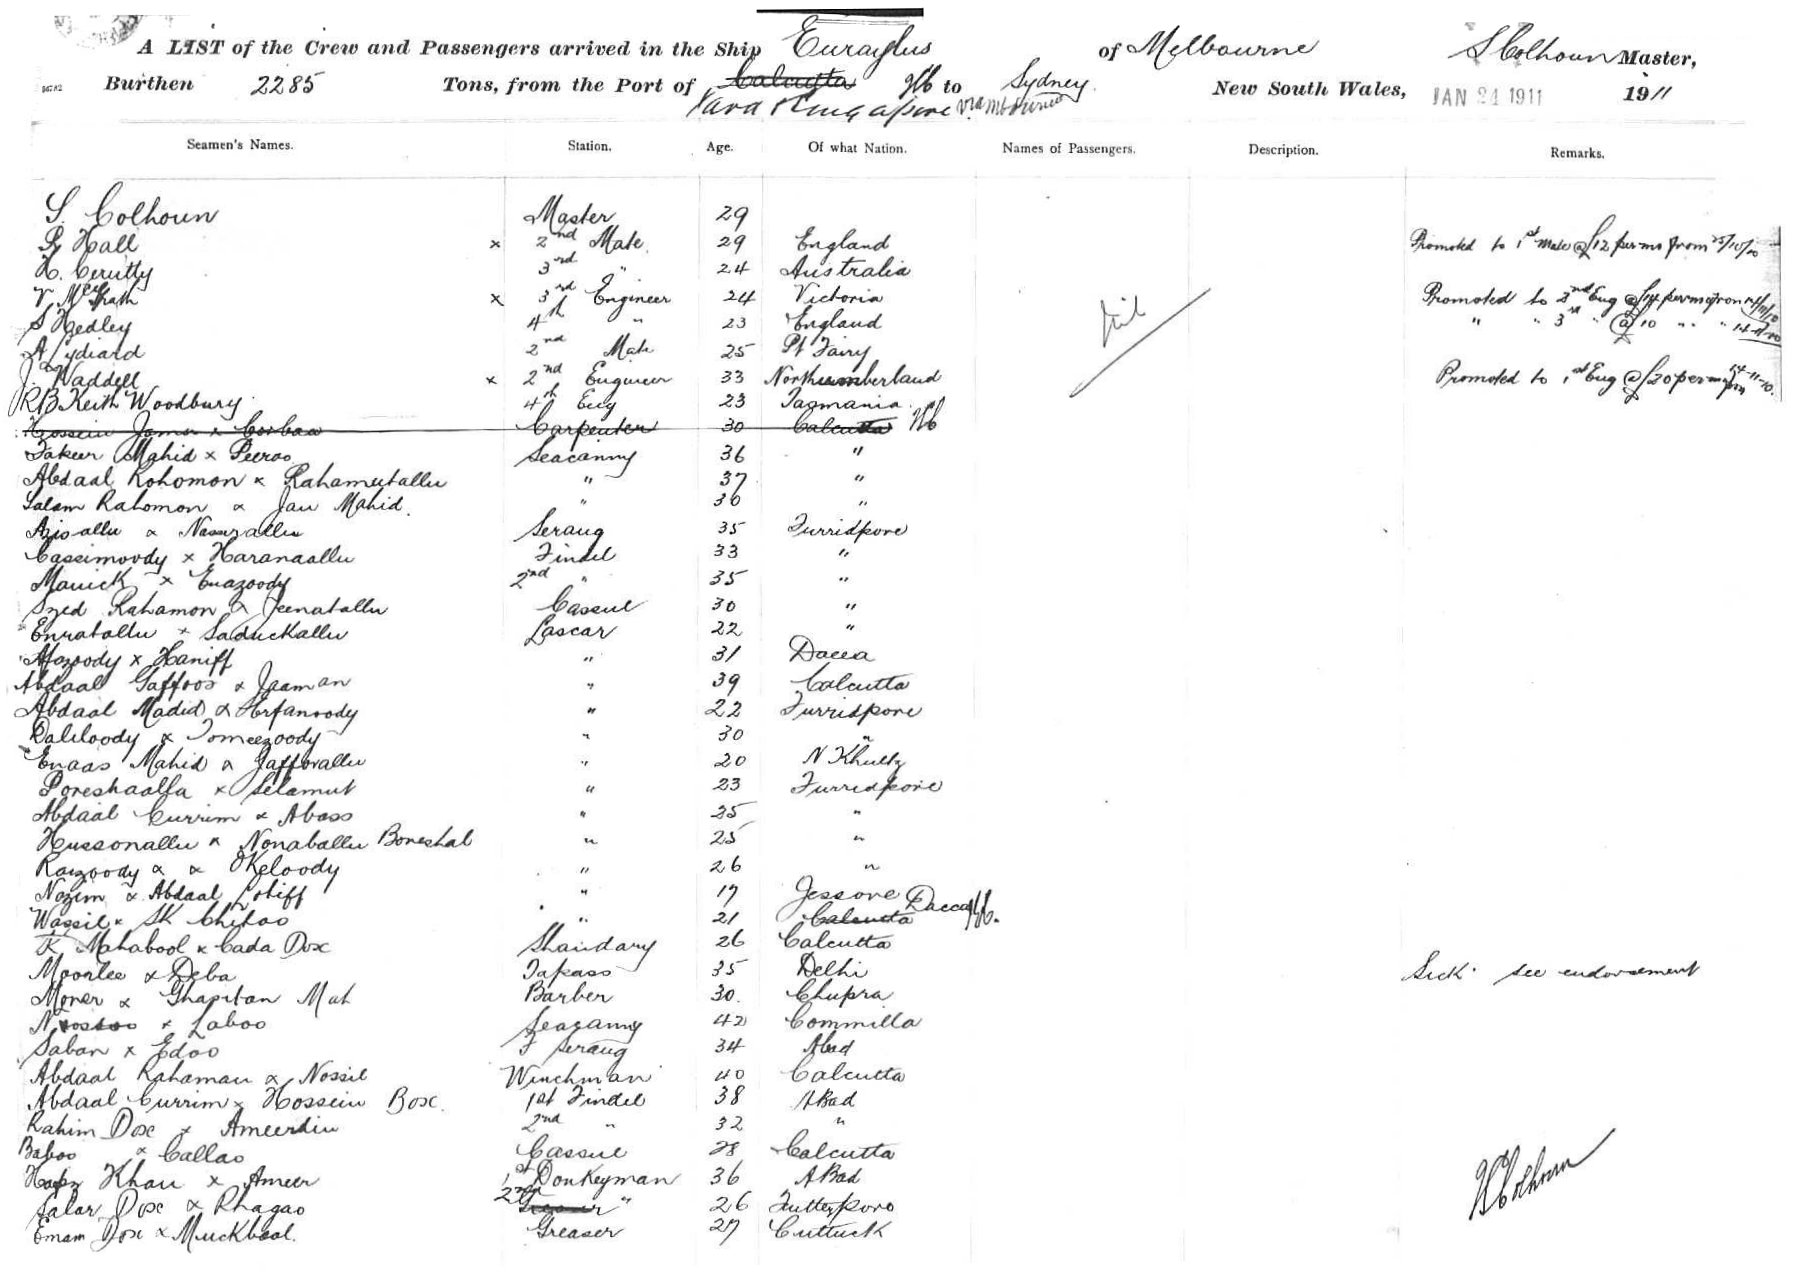 A LIST of the Crew and Passengers arrived in the Ship Euraylus of Melbourne S Colhoun Master,
Burthen 2285 Tons, from the Port of Calcutta to Sydney New South Wales, JAN 24 1911 1911
Java & Singapore via Melbourne
Seamen's Names. Station. Age. Of what Nation. Names of Passengers. Description. Remarks.
S. Colhoun Master 29
Hall x 2nd Mate 29 England Promoted to 1st Mate @ £12 per mo from 25/10/10
H. Cerutty 3rd " 24 Australia
V. McGrath x 3rd Engineer 24 Victoria Promoted to 2nd Eng @ £14 per mo from 14/11/10
S Hedley 4th " 23 England " " 3rd " @ 10 " " 14-11-10
A Lydiard 2nd Mate 25 Pt Fairy
nil
J. Waddell x 2nd Engineer 33 Northumberland Promoted to 1st Eng @ £20 per mo from 14-11-10.
R B Keith Woodbury 4th Eng 23 Tasmania
Hossein Jamer x Corban Carpenter 30 Calcutta
Fakeer Mahid x Peeroo Seacunny 36 "
Abdaal Rohomon x Rahamutallu " 37 "
Salam Rahomon x Jan Mahid. " 36 "
Azisallu x Nassrallu Serang 35 Furridpore
Cassimoody x Haranaallu Tindel 33 "
Manick x Enazoody 2nd " 35 "
Syed Rahamon x Jeenatallu Cassul 30 "
Enratallu x Saduckallu Lascar 22 "
Afazoody x Haniff " 31 Dacca
Abdaal Gaffoor x Jaaman " 39 Calcutta
Abdaal Madid x Herfanoody " 22 Furridpore
Daliloody x Tomeezoody " 30 "
Enaas Mahid x Jafforallu " 20 N Khultz
Poreshaalla x Selamut " 23 Furridpore
Abdaal Currim x Abass " 25 "
Hussonallu x Nonaballu Boneshal " 25 "
Raizoody x x Keloody " 26 "
Nozim x Abdaal Lotiff " 19 Jessore
Wassil x SK Chitoo " 21 Calcutta Dacca
K Mahabool x Cada Dox Bhandary 26 Calcutta
Moonlee x Deba Topass 35 Delhi Sick. see endorsement
Moner x Ghapitan Mah Barber 30. Chupra
x Laboo Seacunny 42 Commilla
Saban x Edoo F Serang 34 Abad
Abdaal Rahaman x Nossil Winchman 40 Calcutta
Abdaal Currim x Hossein Box. 1st Tindel 38 A Bad
Rahim Dox x Ameerdin 2nd " 32 "
Baboo x Callao Cassul 28 Calcutta
Khan x Ameer 1st Donkeyman 36 A Bad
Salar Dox x Bhagao 2nd Greaser " 26 Futteypore
Emam Dox x Muckbool. Greaser 27 Cuttuck
S Colhoun